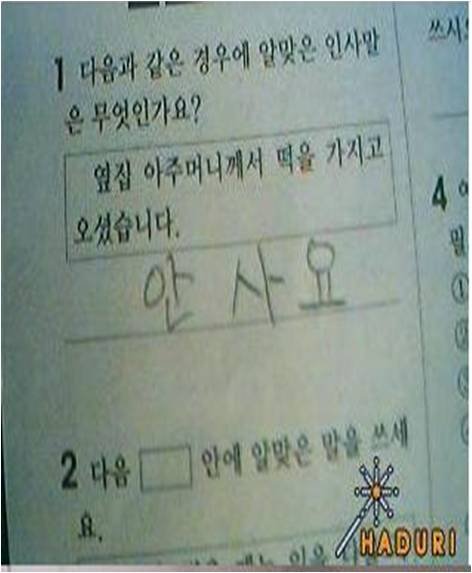 1 다음과 같은 경우에 알맞은 인사말
은 무엇인가요?
옆집 아주머니께서 떡을 가지고
오셨습니다.
안 사요
2 다음 안에 알맞은 말을 쓰세
요.
쓰시오
4
말
①
HADURI